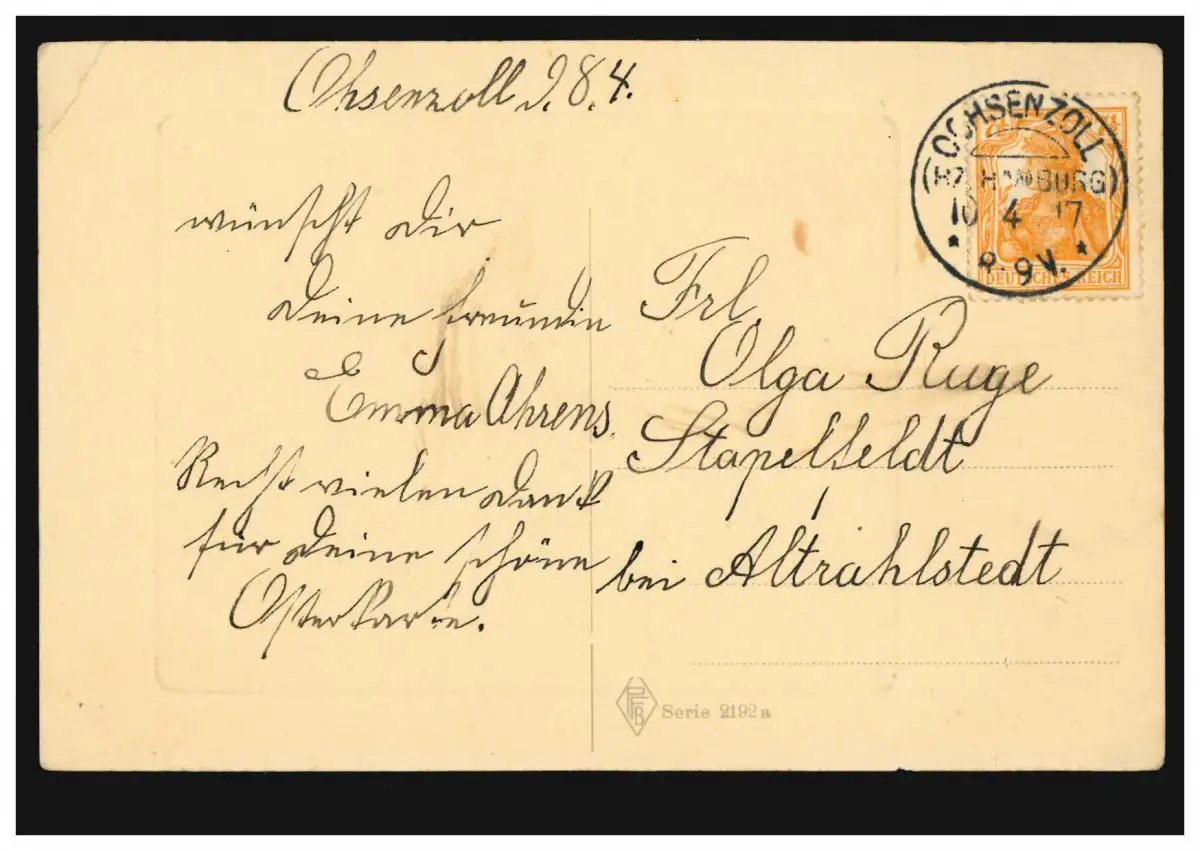 Ohsenzoll d. 8.4.
wünscht dir
deine freundin
Emma Ahrens.
Recht vielen dank
für deine schöne
Osterkarte.
OCHSENZOLL
(BZ. HAMBURG)
10 4 17
8-9 V.
7½ 7½
DEUTSCHES REICH
Frl.
Olga Ruge
Stapelfeldt
bei Altrahlstedt
PFB Serie 2192 a